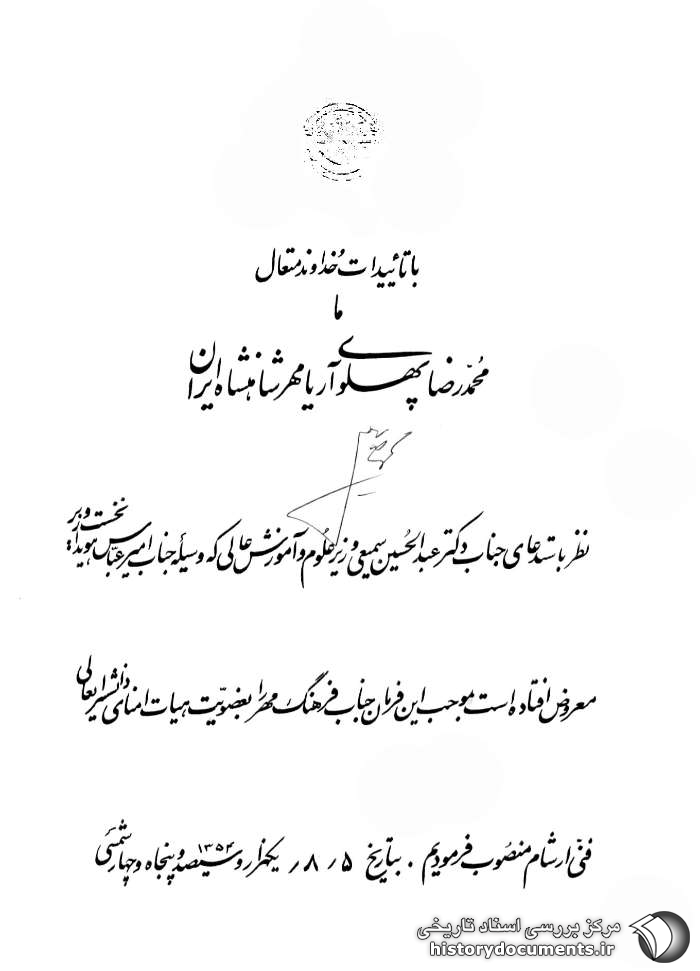 با تأییدات خداوند متعال
ما
محمد رضا پهلوی آریامهر شاهنشاه ایران
نظر باستدعای جناب دکتر عبدالحسین سمیعی وزیر علوم و آموزش عالی که وسیله جناب امیر عباس هویدا نخست وزیر
معروض افتاده است بموجب این فرمان جناب فرهنگ مهر را بعضویت هیات امنای دانشسرایعالی
فنی ارشام منصوب فرمودیم . بتاریخ ۵ / ۸ / ۱۳۵۴ یکهزار و سیصد و پنجاه و چهار شمسی
مرکز بررسی اسناد تاریخی
historydocuments.ir